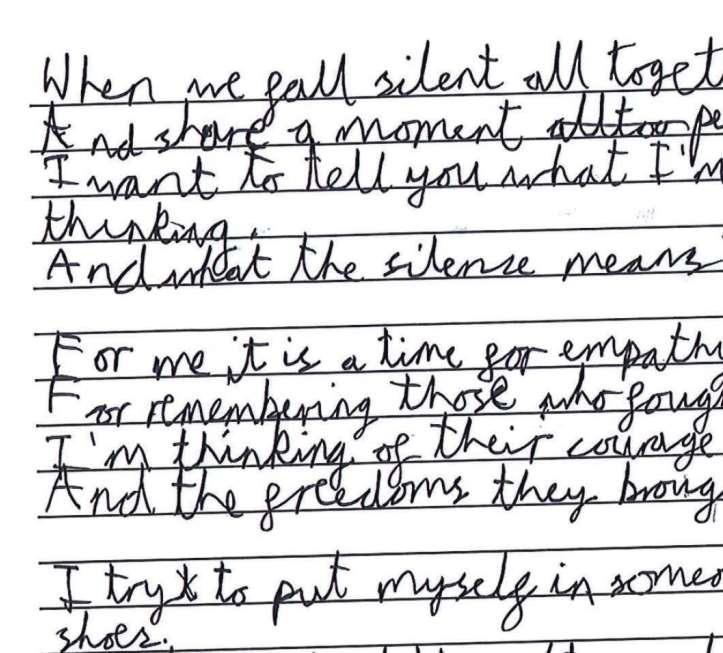 When we fall silent all toget
And share a moment all too pe
I want to tell you what I'm
thinking.
And what the silense means
For me it is a time for empath
For remembering those who foug
I'm thinking of their courage
And the freedoms they broug
I try to put myself in someo
shoes.